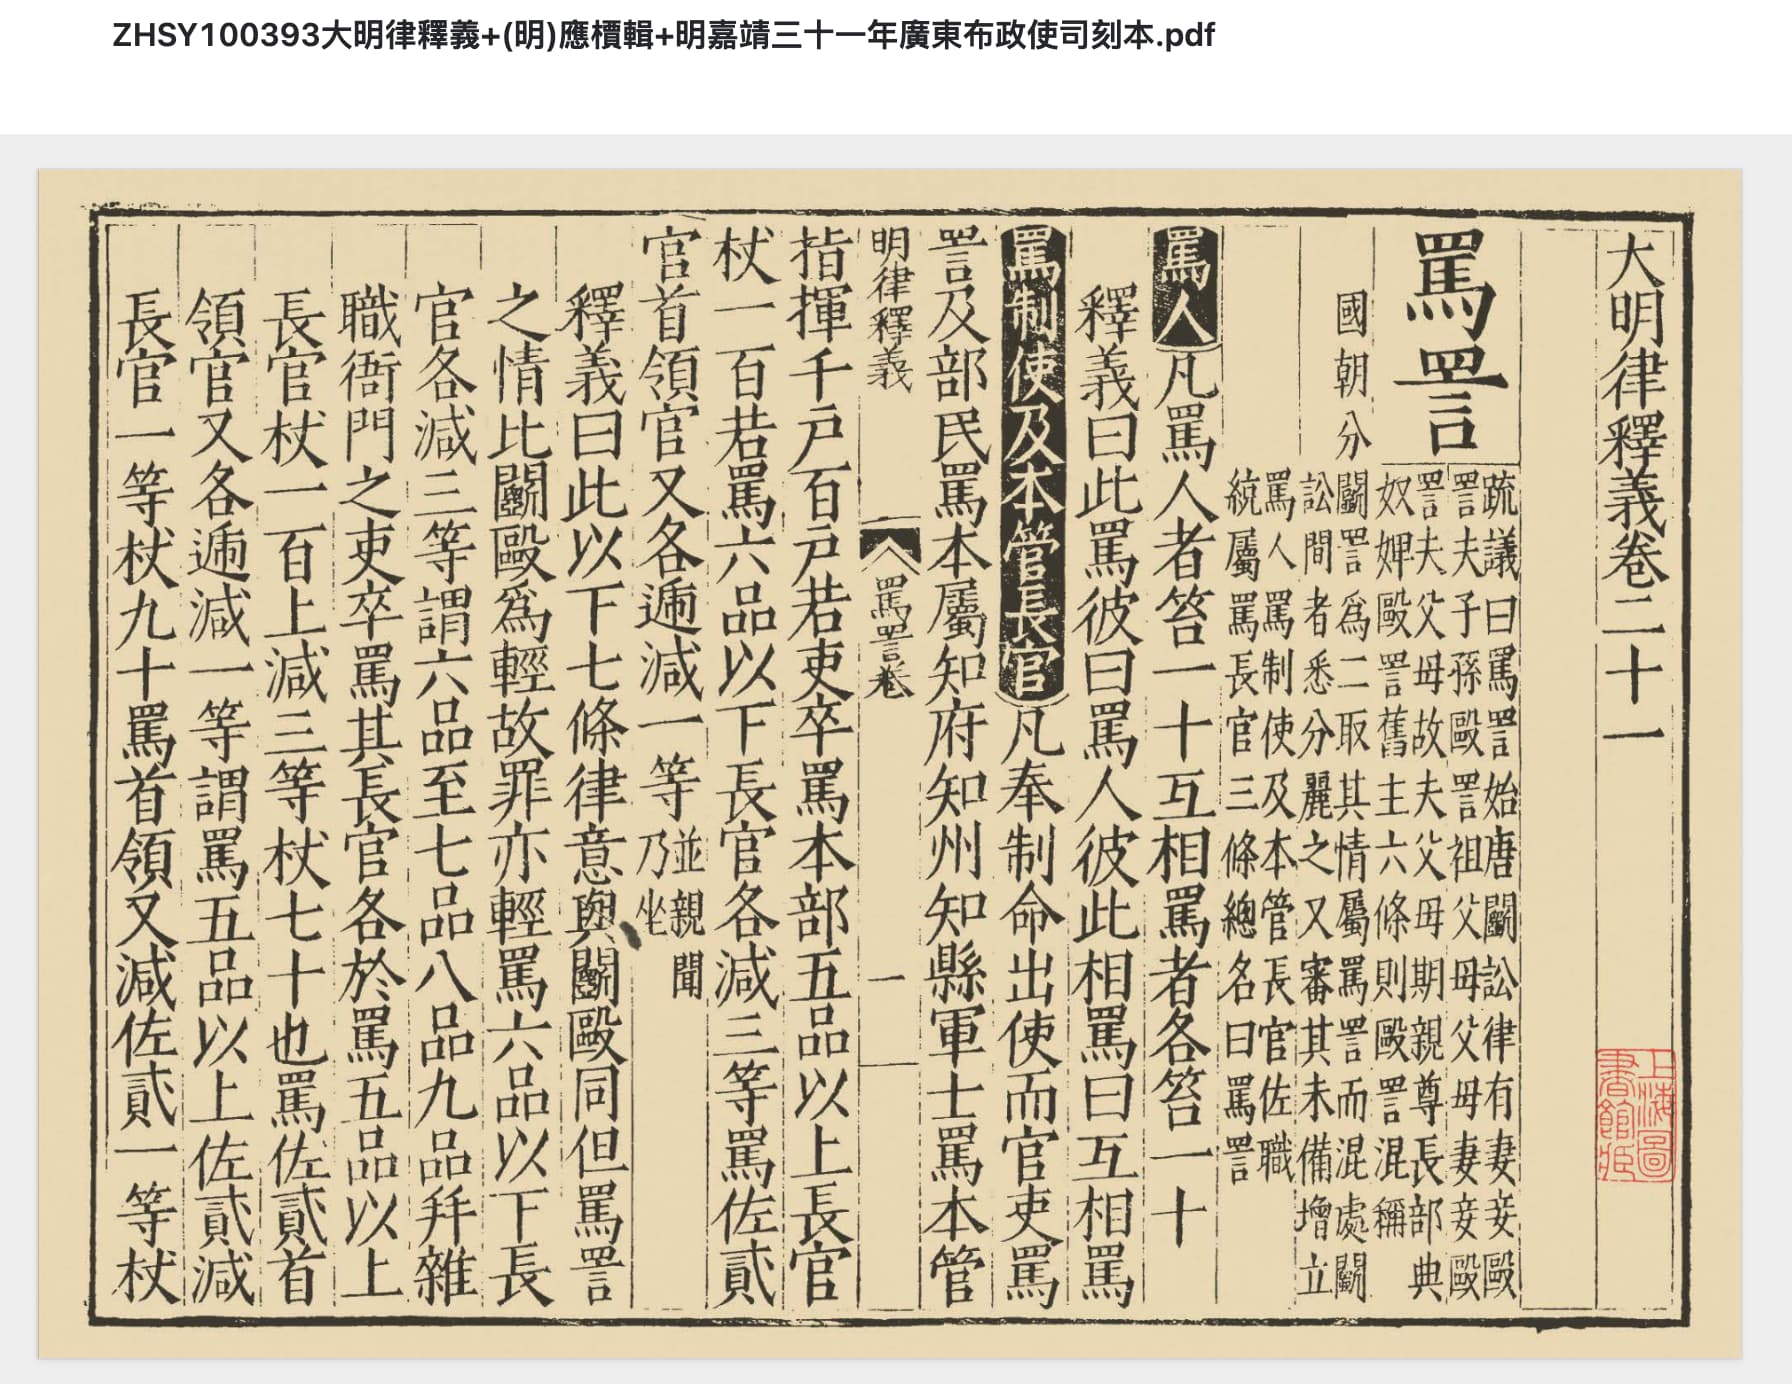 ZHSY100393大明律釋義+(明)應檟輯+明嘉靖三十一年廣東布政使司刻本.pdf
大明律釋義卷二十一
上海圖書館藏
罵詈
疏議曰罵詈始唐鬬訟律有妻妾毆
詈夫子孫毆詈祖父母父母妻妾毆
詈夫父母故夫父母期親尊長部典
奴婢毆詈舊主六條則毆詈混稱
國朝分
鬬詈爲二取其情屬罵詈而混處鬬
訟間者悉分麗之又審其未備增立
罵人罵制使及本管長官佐職
統屬罵長官三條總名曰罵詈
罵人凡罵人者笞一十互相罵者各笞一十
釋義曰此罵彼曰罵人彼此相罵曰互相罵
罵制使及本管長官凡奉制命出使而官吏罵
詈及部民罵本屬知府知州知縣軍士罵本管
明律釋義
罵詈卷
一
指揮千戶百戶若吏卒罵本部五品以上長官
杖一百若罵六品以下長官各減三等罵佐貳
官首領官又各遞減一等並親聞乃坐
釋義曰此以下七條律意與鬬毆同但罵詈
之情比鬬毆爲輕故罪亦輕罵六品以下長
官各減三等謂六品至七品八品九品幷雜
職衙門之吏卒罵其長官各於罵五品以上
長官杖一百上減三等杖七十也罵佐貳首
領官又各遞減一等謂罵五品以上佐貳減
長官一等杖九十罵首領又減佐貳一等杖